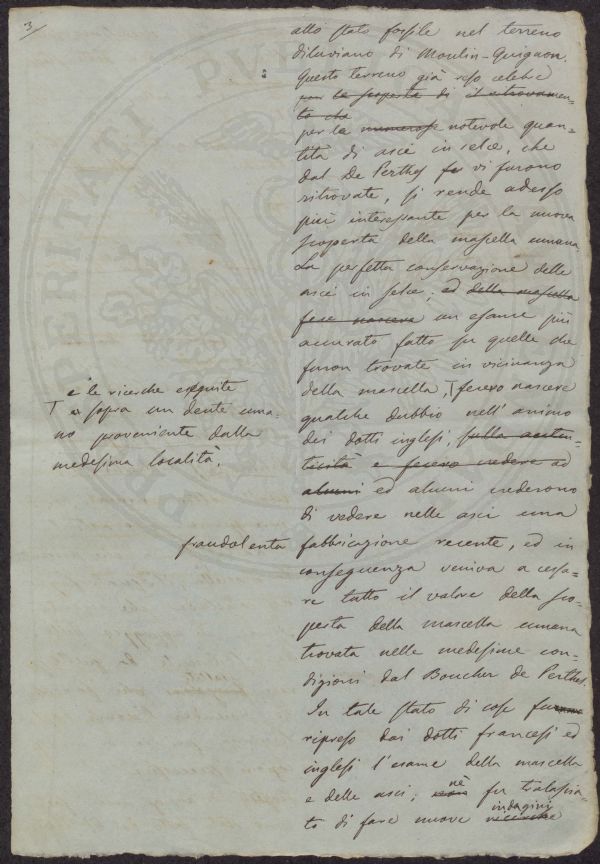 3/
allo stato fossile nel terreno
diluviano di Moulin-Quignon.
Questo terreno già reso celebre
per la scoperta di il ritrovamen-
to che
per la numerose notevole quan-
tità di asce in selce, che
dal De Perthes fu vi furono
ritrovate, si rende adesso
più interessante per la nuova
scoperta della mascella umana.
La perfetta conservazione delle
asce in selce; ed della mascella
fece nascere un esame più
accurato fatto su quelle che
furon trovate in vicinanza
della mascella, T fecero nascere
qualche dubbio nell'animo
dei dotti inglesi, sulla auten-
ticità e fecero credere ad
alcuni ed alcuni crederono
di vedere nelle asci una
fabbricazione recente, ed in
conseguenza veniva a cessa-
re tutto il valore della sco-
perta della mascella umana
trovata nelle medesime con-
dizioni dal Boucher de Perthes.
In tale stato di cose furono
ripreso dai dotti francesi ed
inglesi l'esame della mascella
e delle asci; nè fu tralascia-
to di fare nuove ricerche indagini
e le ricerche eseguite
T sopra un dente uma-
no proveniente dalla
medesima località.
fraudolenta